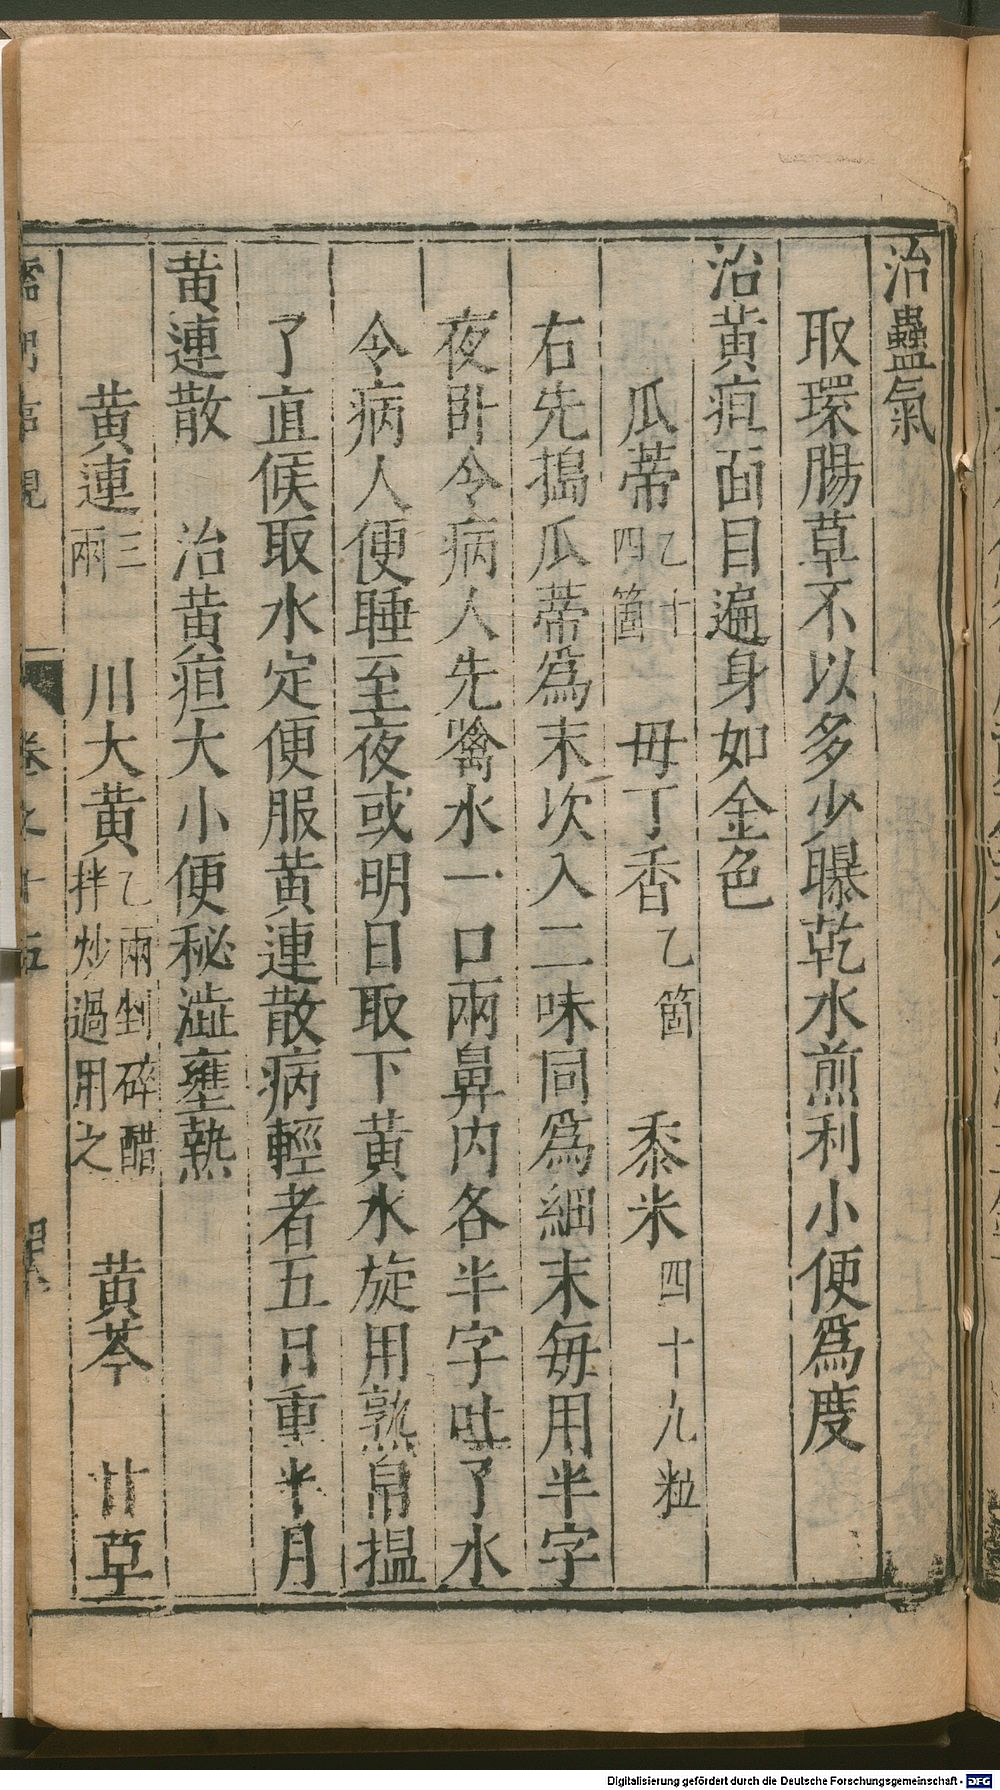 治蠱氣
取環腸草不以多少曝乾水煎利小便爲度
治黃疸面目遍身如金色
瓜蒂乙十四箇 毋丁香乙箇 黍米四十九粒
右先搗瓜蒂爲末次入二味同爲細末每用半字
夜卧令病人先噙水一口兩鼻内各半字吐了水
令病人便睡至夜或明日取下黃水旋用熟帛揾
了直候取水定便服黃連散病輕者五日重半月
黃連散 治黃疸大小便秘澁壅熱
黃連三兩 川大黃乙兩剉碎醋拌炒過用之 黃芩 甘草
卷之十五
Digitalisierung gefördert durch die Deutsche Forschungsgemeinschaft - DFG